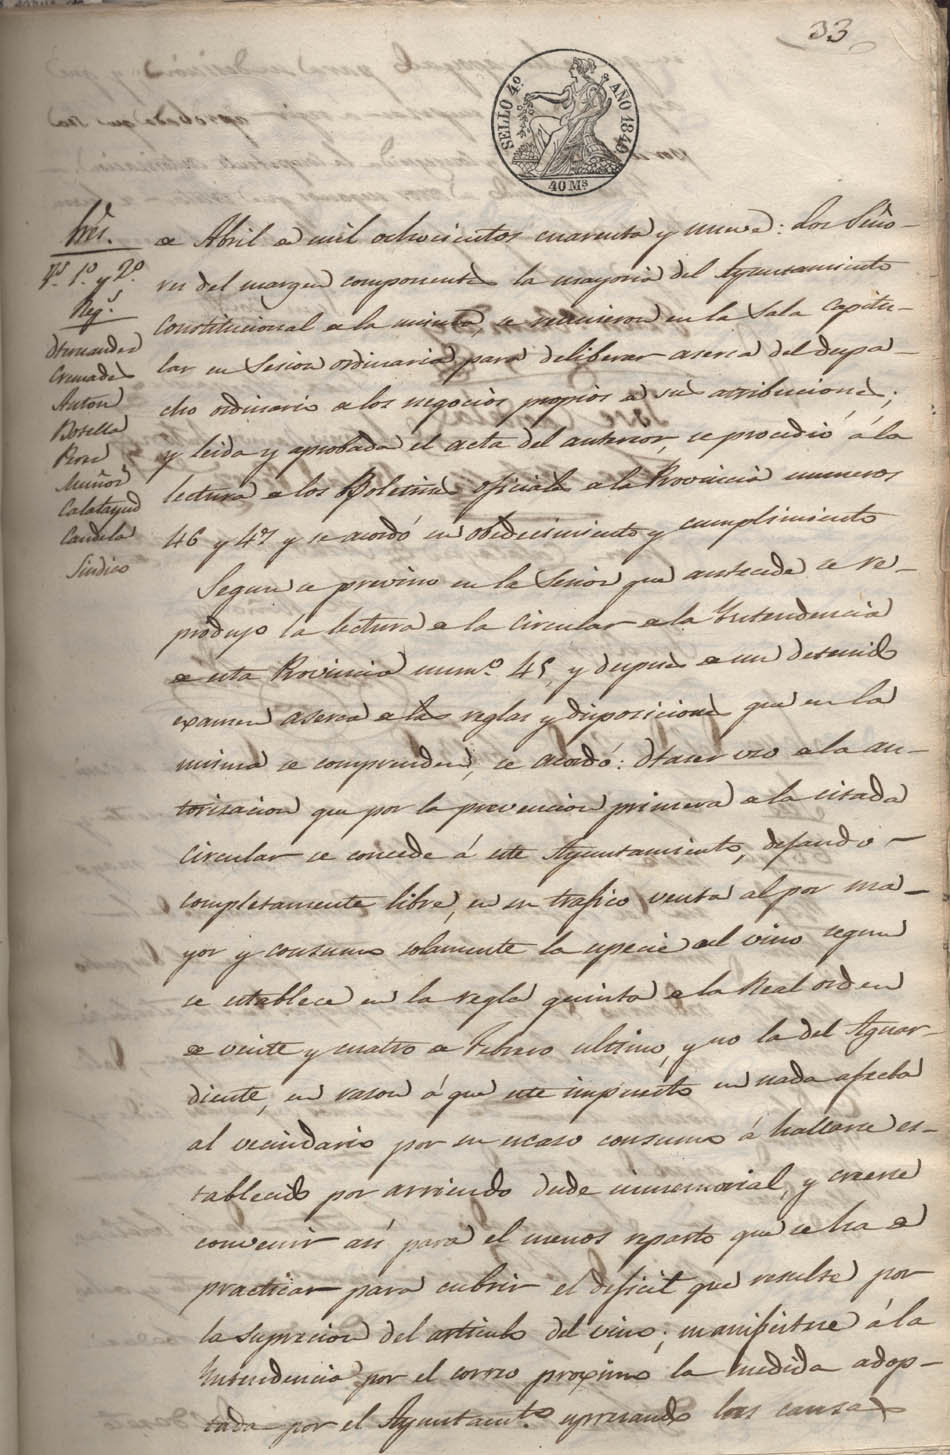 33
SELLO 4º AÑO 1849
40 Ms
Sres.
1º y 2º
Rexs.
Hernandez
Cremades
Anton
Botella
Pore
Muñoz
Calatayud
Candela
Sindico
de Abril de mil ochocientos cuarenta y nueve: Los Seño-
res del margen componentes la mayoria del Ayuntamiento
Constitucional de la misma, se reunieron en la Sala Capitu-
lar en Sesion ordinaria para deliberar aserca del despa-
cho ordinario de los negocios propios de sus atribuciones;
y leida y aprobada el acta del anterior, se procedió á la
lectura de los Boletines oficiales de la Provincia numeros
46 y 47 y se acordó su obedecimiento y cumplimiento
Segun se previno en la Sesion que antecede se re-
produjo la lectura de la Circular de la Intendencia
de esta Provincia numº 45, y despues de un detenido
examen aserca de las reglas y disposiciones que en la
misma se comprenden, se acordó: Hacer uso de la au-
torisacion que por la prevencion primera de la citada
Circular se concede á este Ayuntamiento, dejando
completamente libre, en su trafico venta al por ma-
yor y consumo solamente la especie del vino segun
se establece en la regla quinta de la Real orden
de veinte y cuatro de Febrero ultimo, y no la del Aguar-
diente, en rason á que este impuesto en nada afecta
al vecindario por su escaso consumo á hallarse es-
tablecido por arriendo desde inmemorial, y creerse
convenir asi para el menos reparto que se ha de
practicar para cubrir el deficit que resulte por
la supresion del articulo del vino; manifiestese á la
Intendencia por el correo proximo la medida adop-
tada por el Ayuntamto. espresando las causas